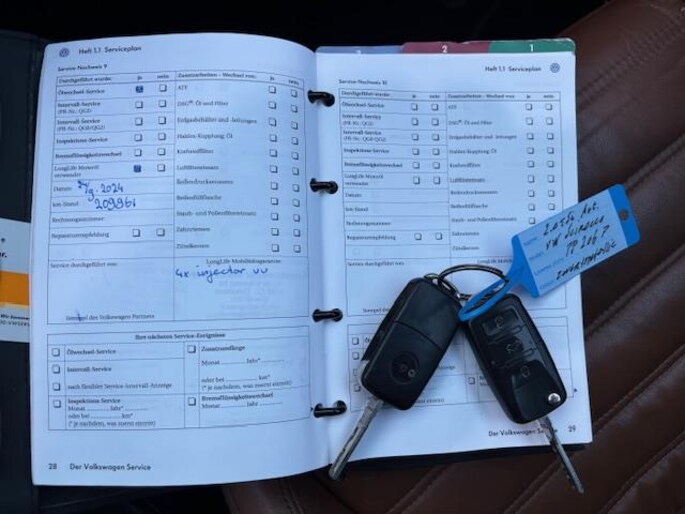 Heft 1.1 Serviceplan
Service-Nachweis 9
Durchgeführt wurde: ja nein Zusatzarbeiten - Wechsel von: ja nein
Ölwechsel-Service ATF
Intervall-Service DSG®: Öl und Filter
(PR-Nr.: QG1)
Intervall-Service Erdgasbehälter und -leitungen
(PR-Nr.: QG0/QG2)
Inspektions-Service Haldex Kupplung: Öl
Bremsflüssigkeitswechsel Kraftstofffilter
LongLife Motoröl Luftfiltereinsatz
verwendet
Datum 9.2024 Reifendrucksensoren
km-Stand 209961 Reifenfüllflasche
Rechnungsnummer Staub- und Pollenfiltereinsatz
Reparaturempfehlung Zahnriemen
Zündkerzen
Service durchgeführt von: LongLife Mobilitätsgarantie:
4x injector
Stempel des Volkswagen Partners
Ihre nächsten Service-Ereignisse
Ölwechsel-Service Zusatzumfänge
Monat Jahr*
Intervall-Service
oder bei km*
nach flexibler Service-Intervall-Anzeige (* je nachdem, was zuerst eintritt)
Inspektions-Service Bremsflüssigkeitswechsel
Monat Jahr* Monat Jahr
oder bei km*
(* je nachdem, was zuerst eintritt)
28 Der Volkswagen Service
2 1
Heft 1.1 Serviceplan
Service-Nachweis 10
Durchgeführt wurde: ja nein Zusatzarbeiten - Wechsel von: ja nein
Ölwechsel-Service ATF
Intervall-Service DSG®: Öl und Filter
(PR-Nr.: QG1)
Intervall-Service Erdgasbehälter und -leitungen
(PR-Nr.: QG0/QG2)
Inspektions-Service Haldex Kupplung: Öl
Bremsflüssigkeitswechsel Kraftstofffilter
LongLife Motoröl Luftfiltereinsatz
verwendet
Datum Reifendrucksensoren
km-Stand Reifenfüllflasche
Rechnungsnummer Staub- und Pollenfiltereinsatz
Reparaturempfehlung Zahnriemen
Zündkerzen
Service durchgeführt von: LongLife
Stempel
Der Volkswagen Service 29
VW Scirocco